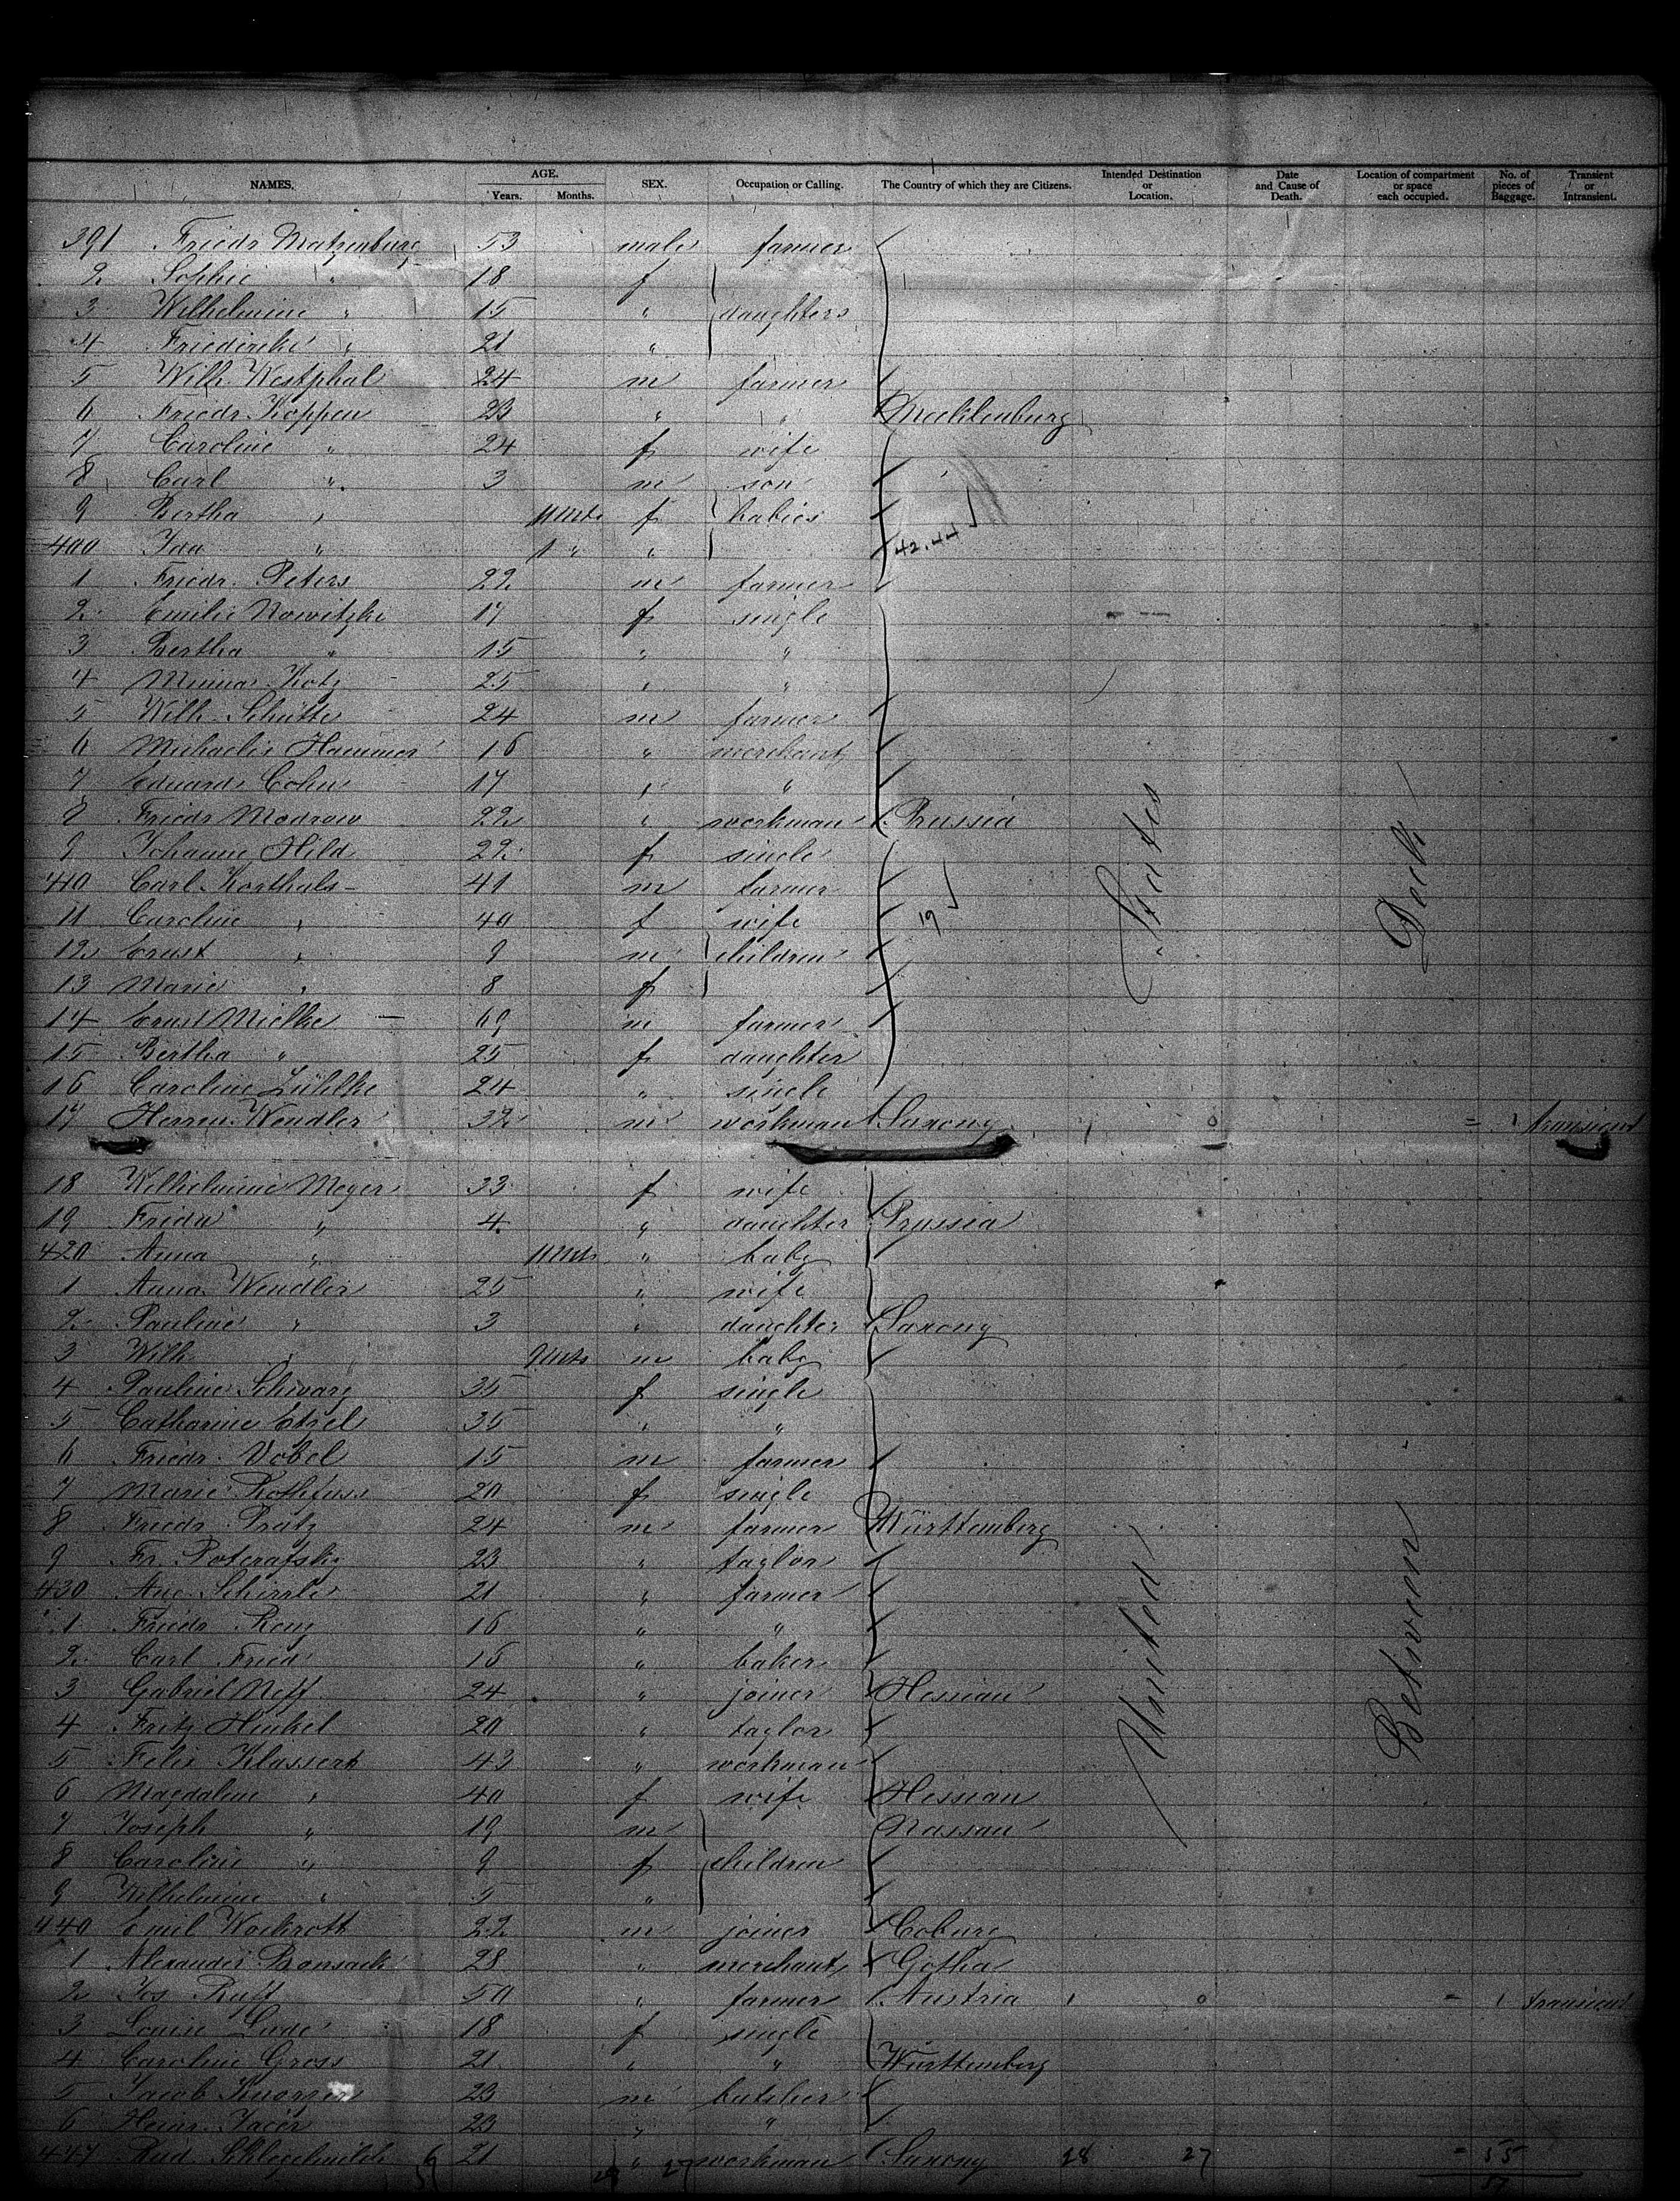 NAMES. AGE. Years. Months. SEX. Occupation or Calling. The Country of which they are Citizens. Intended Destination or Location. Date and Cause of Death. Location of compartment or space each occupied. No. of pieces of Baggage. Transient or Intransient.
391 Friedr Matzenburg 53 male farmer
2 Sophie " 18 f
3 Wilhelmine " 15 " daughters
4 Friederike " 21 "
5 Wilh. Westphal 24 m farmer
6 Friedr. Koppen 23 " " Mecklenburg
7 Caroline " 24 f wife
8 Carl " 3 m son
9 Bertha " 11 Mts f babies
400 Ida " 1 " " 42.44
1 Friedr. Peters 22 m farmer
2 Emilie Nowitzke 17 f single
3 Bertha " 15 " "
4 Minna Kotz 25 " "
5 Wilh. Schütte 24 m farmer
6 Michaelis Hammer 16 " merchant
7 Eduard Cohn 17 " "
8 Friedr Modrow 22 " workman Prussia
9 Johanne Hild 22 f single
410 Carl Korthals 41 m farmer
11 Caroline " 40 f wife 19
12 Ernst " 9 m children
13 Marie " 8 f
14 Ernst Mielke 69 m farmer
15 Bertha " 25 f daughter
16 Caroline Lühlke 24 " single
17 Herm. Wendler 32 m workman Saxony 1 0 = 1 transient
18 Wilhelmine Meyer 33 f wife
19 Frida " 4 " daughter Prussia
420 Anna " 11 Mts " baby
1 Anna Wendler 25 " wife
2 Pauline " 3 " daughter Saxony
3 Wilh. " Mts m baby
4 Pauline Schwarz 35 f single
5 Catharine Etzel 35 " "
6 Friedr. Vobel 15 m farmer
7 Marie Rothfuss 20 f single
8 Friedr. Pratz 24 m farmer Württemberg
9 Fr. 23 " taylor
430 Aug. 21 " farmer
1 Friedr Renz 16 " "
2 Carl Fried 16 " baker
3 Gabriel Neff 24 " joiner Hessian
4 Fritz Hinkel 20 " taylor
5 Felix Klassert 43 " workman
6 Magdalene " 40 f wife Hessian
7 Joseph " 19 m Nassau
8 Caroline " 9 f children
9 Wilhelmine " 5 "
440 Emil Wockrott 22 m joiner Coburg
1 Alexander Bonsack 28 " merchant Gotha
2 Jos. Ruff 50 " farmer Austria 1 0 = 1 transient
3 Louise 18 f single
4 Caroline Gross 21 " " Württemberg
5 Jacob 23 m butcher
6 Heinr. 23 " "
447 Rud. Schlegelmilch 21 " workman Saxony 28 27 = 55
57
United States
Between Deck